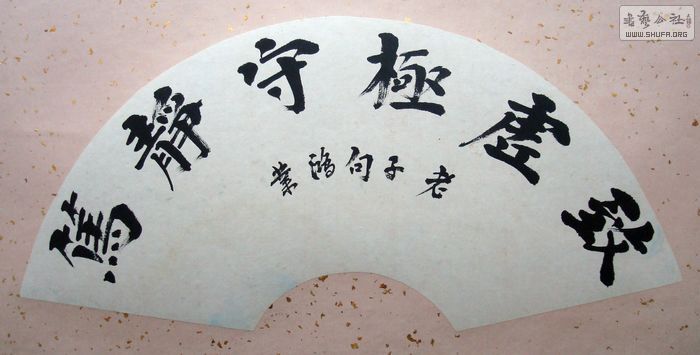 致虛極守靜篤
老子句鴻業
書藝公社
WWW.SHUFA.ORG